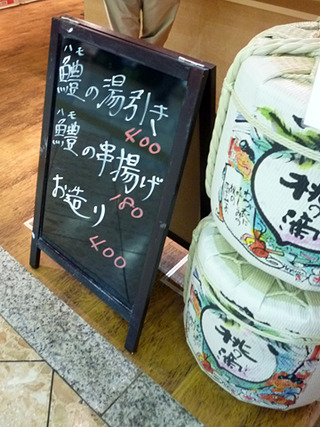 ハモ
鱧の湯引き
400
ハモ
鱧の串揚げ
180
お造り
400
桃の滴
桃の滴